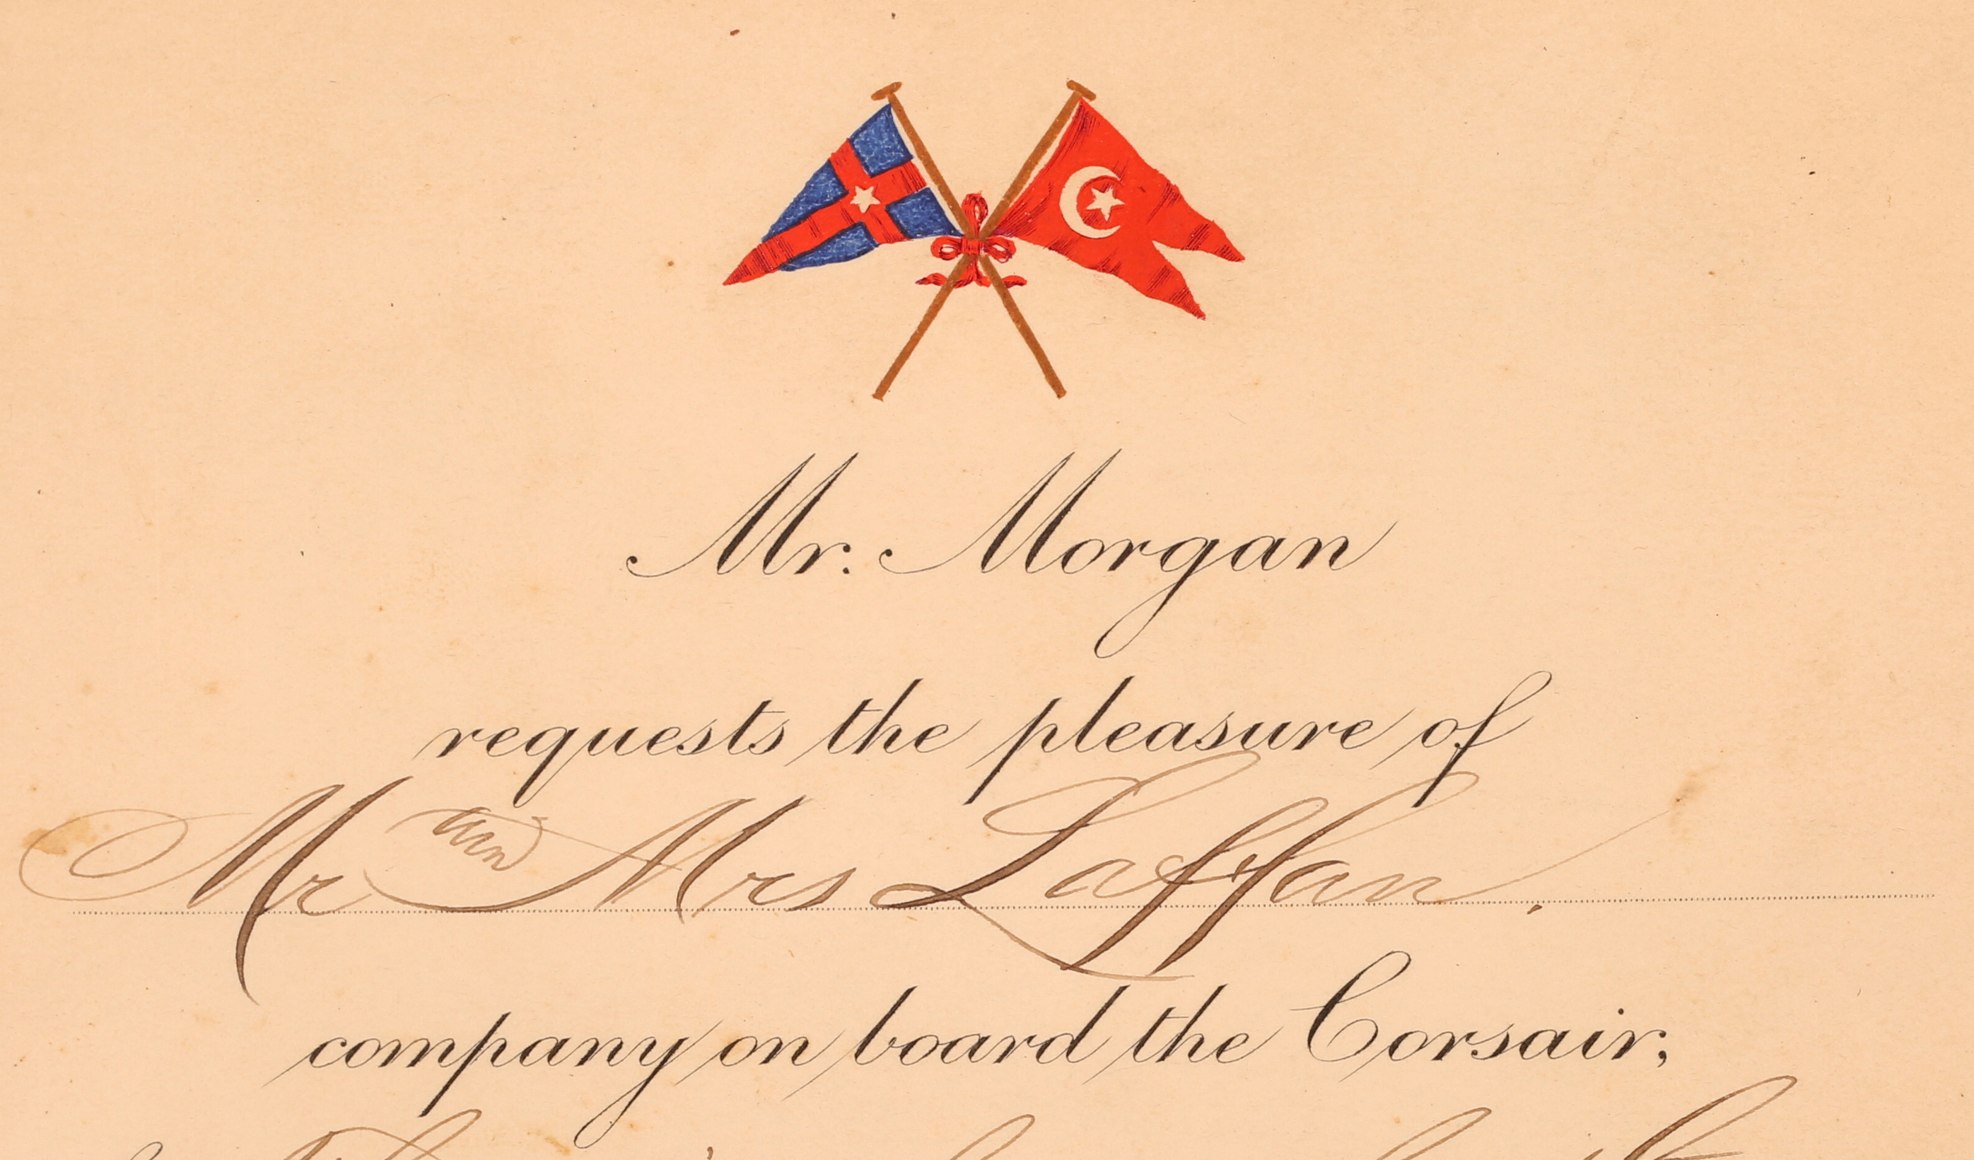 Mr. Morgan
requests the pleasure of
Mr and Mrs Laffan.
company on board the Corsair,